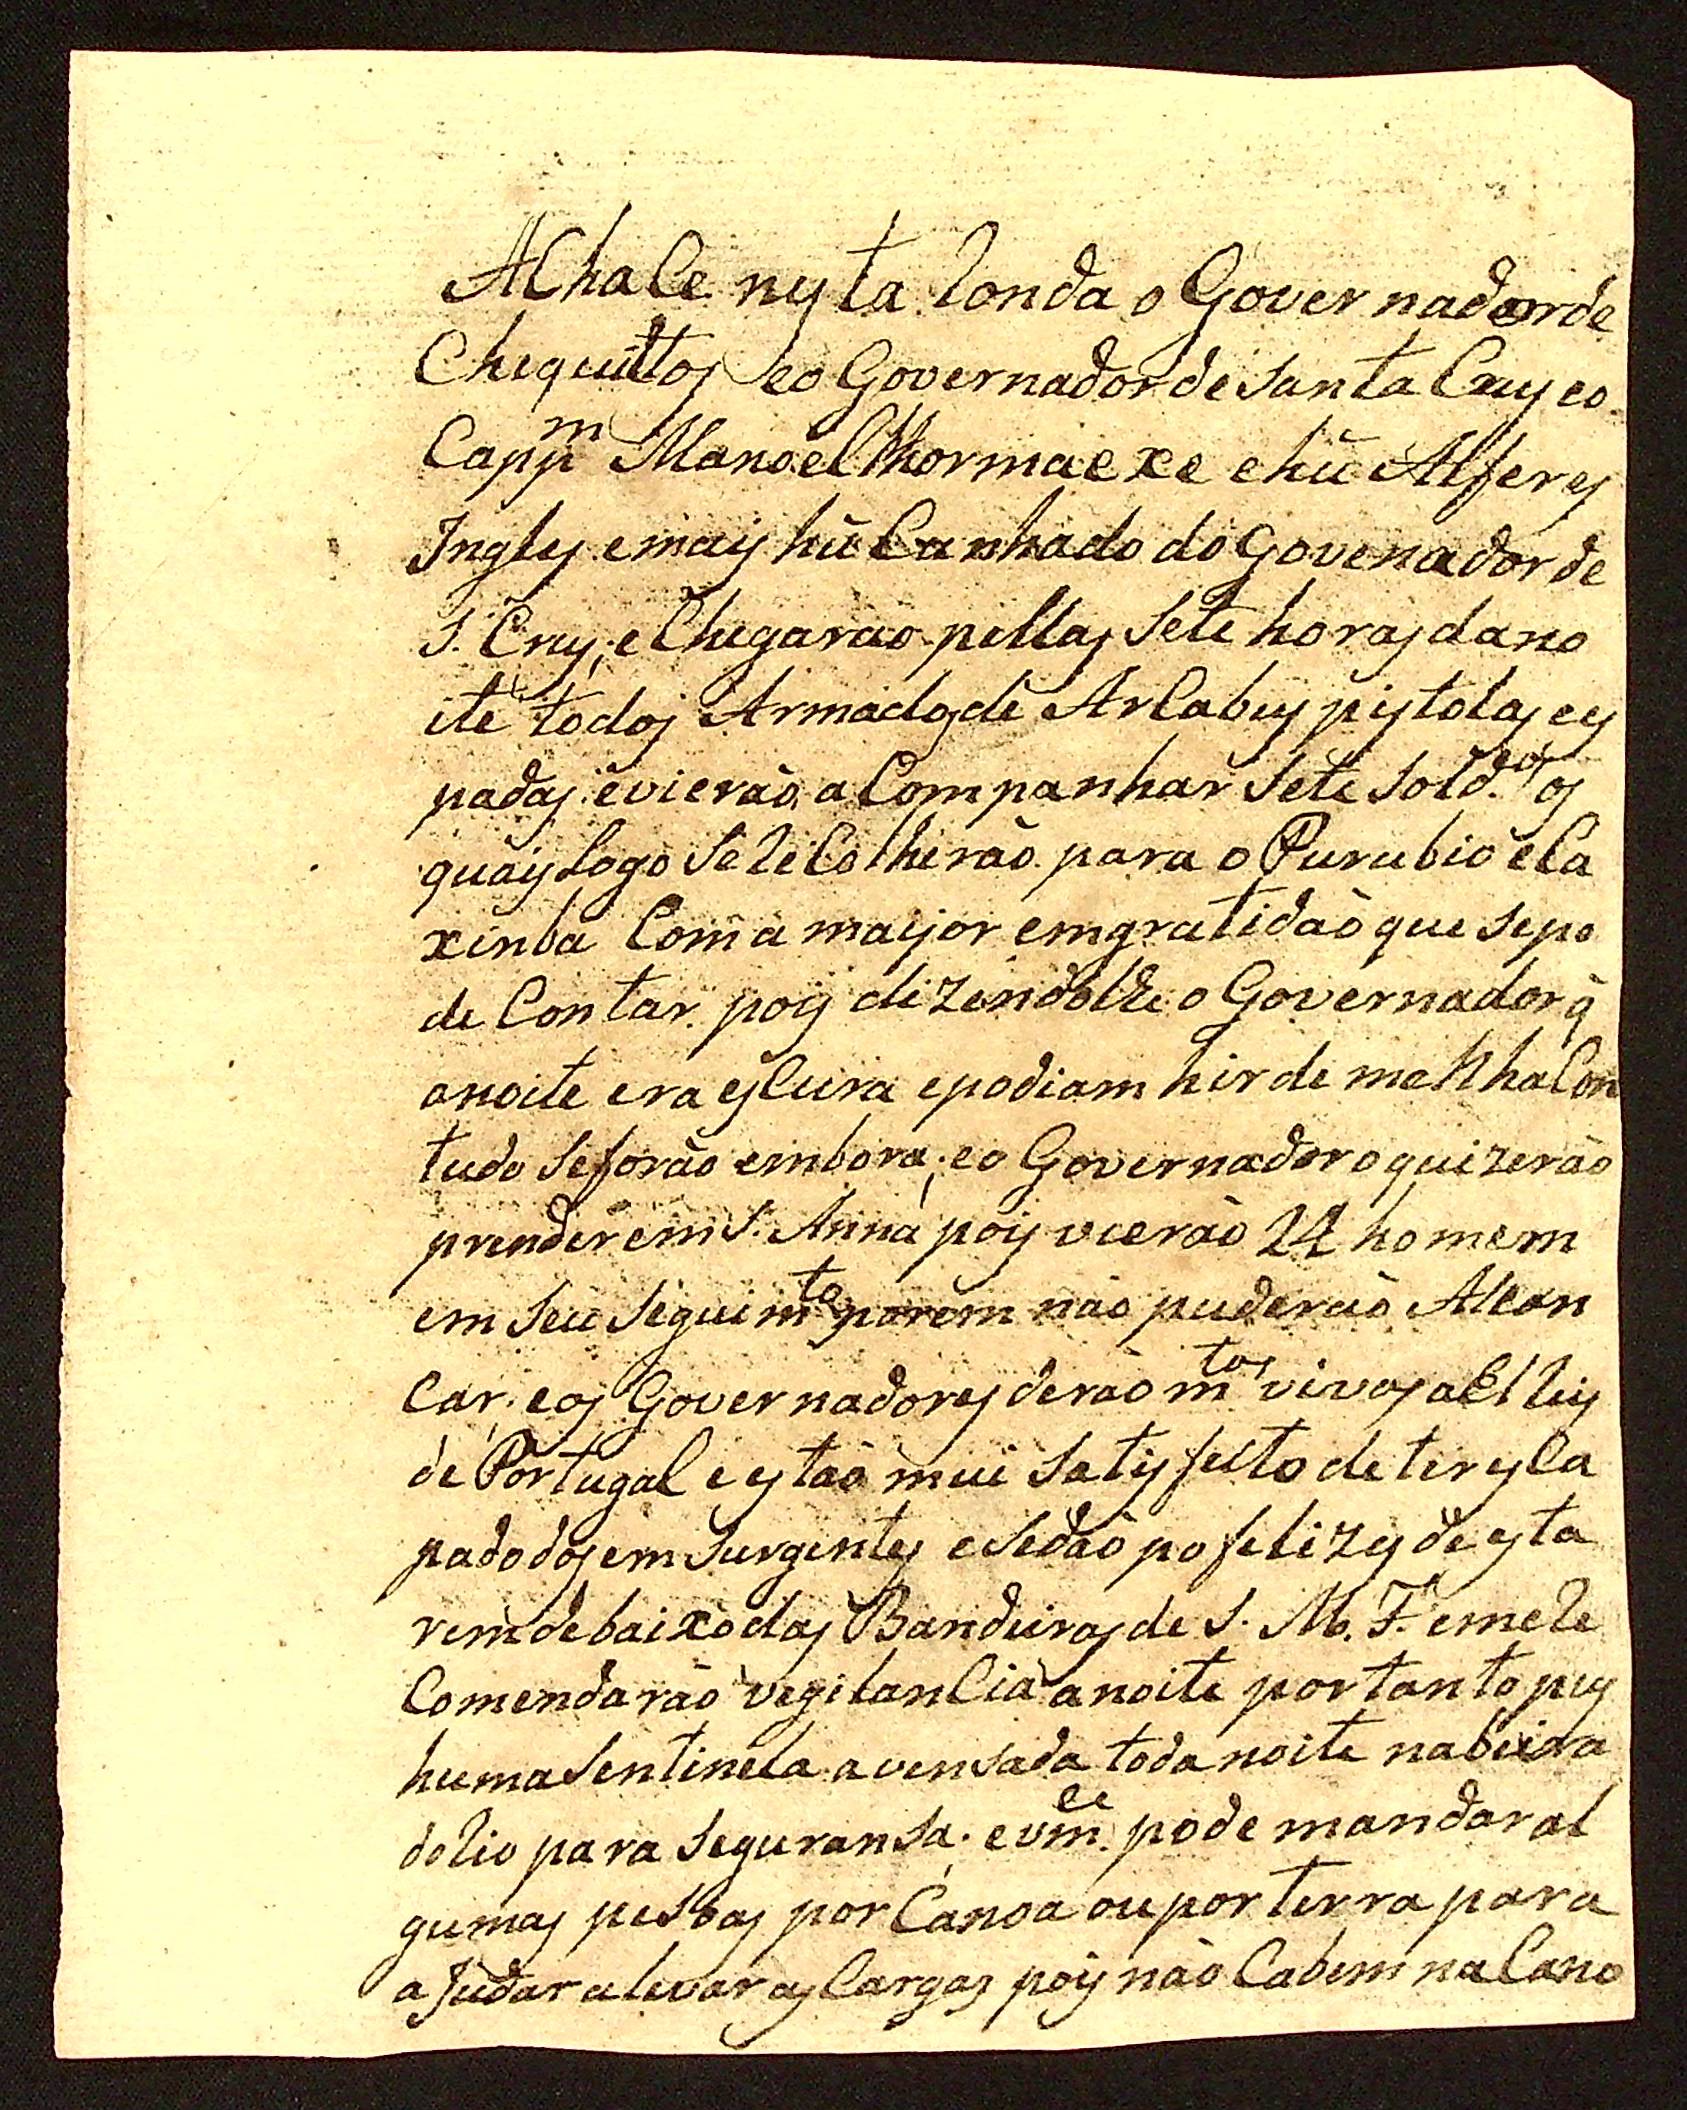 AChaCe nesta Ronda o Governador de
Chequittos eo Governador de Santa Cruz eo
Capp.m Manoel Thormaexe e hũ Alferes
Ingles emais hũ Cunhado do Govenador de
S. Cruz, e Chegarão pellas Sete horas dano
ite todos Armados de ArCabus pistolas es
padas, evierão aCompanhar Sete Sold.os os
quais Logo Se ReColherão para o Purubio e Ca
ximba Com a maijor emgratidão que Sepo
de Contar pois dizendolhe o Governador q̃
anoite era esCura epodiam hir de mañha Con
tudo Seforão embora, eo Governador o quizerão
prender em S. Anna pois vierão 24 homem
em Seu Seguim.to porem não puderão Alcan
Car, eos Governadores derão m.tos vivas aEl Reis
de Portugal e estão mui Satisfeito de ter esCa
pado dos emSurgentes e Sedão po felizes de esta
rem debaixo das Bandeiras de S. M. F. eme Re
Comendarão vegilanCia anoite portanto pus
huma Sentinela avensada toda noite nabeira
doRio para Seguransa. e vm.ce pode mandar al
gumas pesoas por Canoa ou por terra para
aJudar alevar as Cargas pois não Cabem na Cano